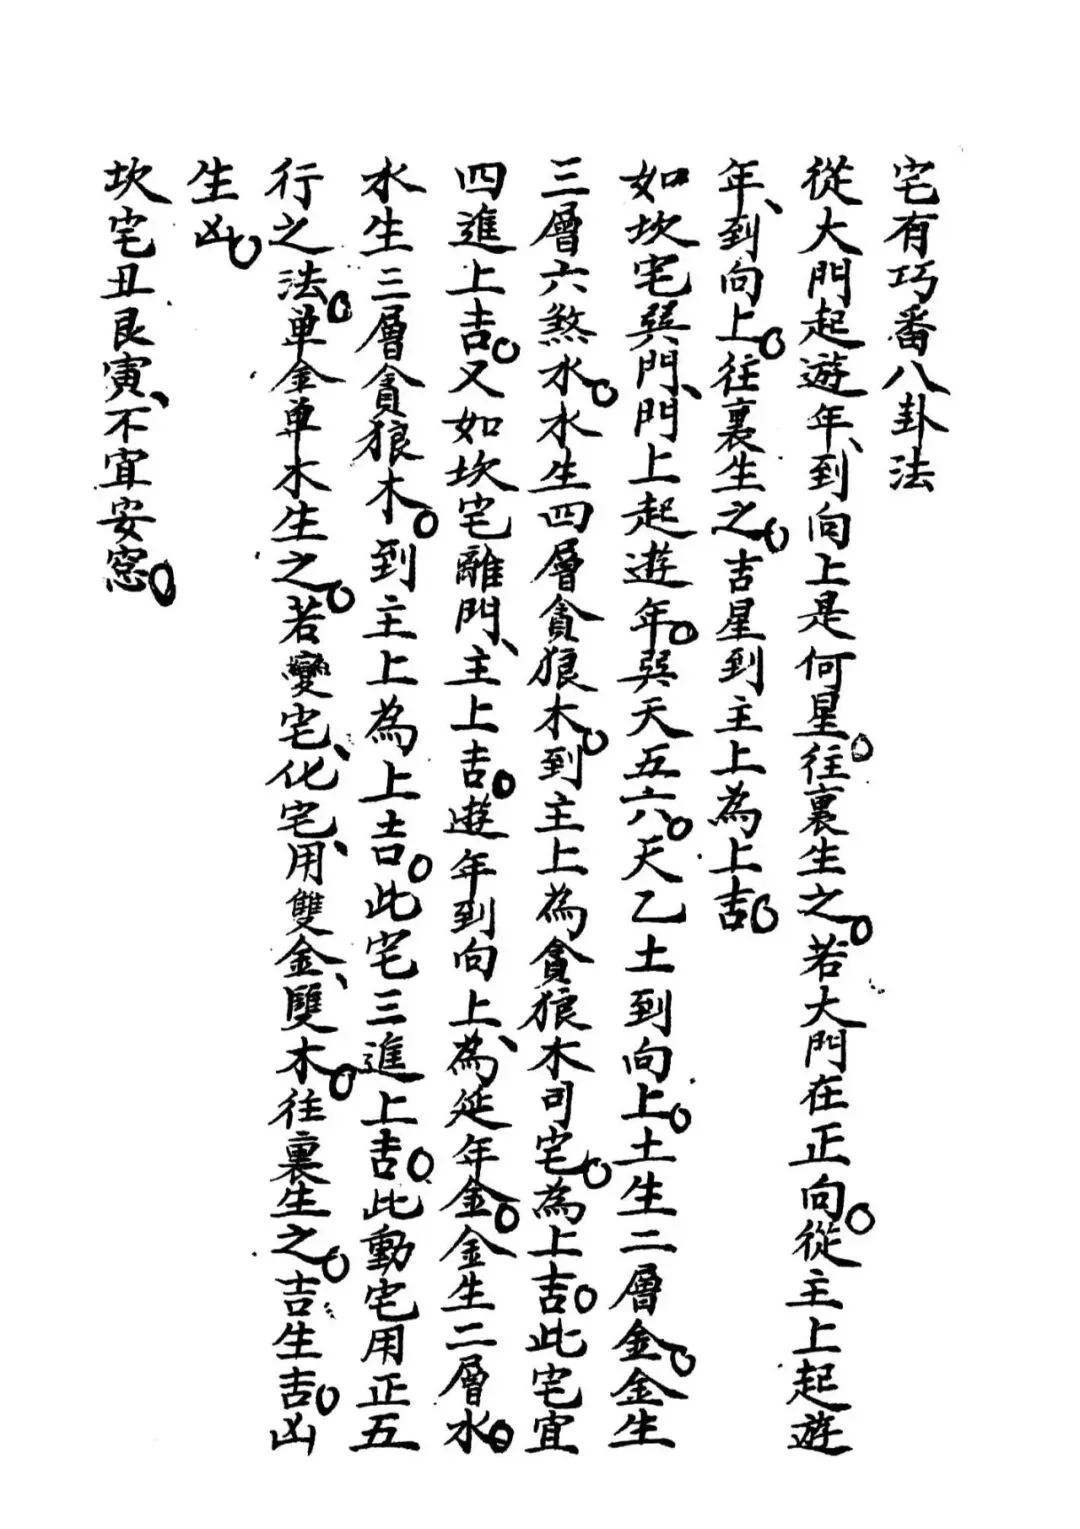 宅有巧番八卦法
從大門起遊年、到向上是何星。往裏生之。若大門在正向。從主上起遊
年、到向上。往裏生之。吉星到主上為上吉。
如坎宅巽門、門上起遊年。巽天五六。天乙土到向上。土生二層金。金生
三層六煞水。水生四層貪狼木。到主上為貪狼木司宅。為上吉。此宅宜
四進上吉。又如坎宅離門、主上吉。遊年到向上、為延年金。金生二層水。
水生三層貪狼木。到主上為上吉。此宅三進上吉。此動宅用正五
行之法。单金单木生之。若變宅、化宅、用雙金、雙木。往裏生之。吉生吉。凶
生凶。
坎宅丑艮寅、不宜安窓。